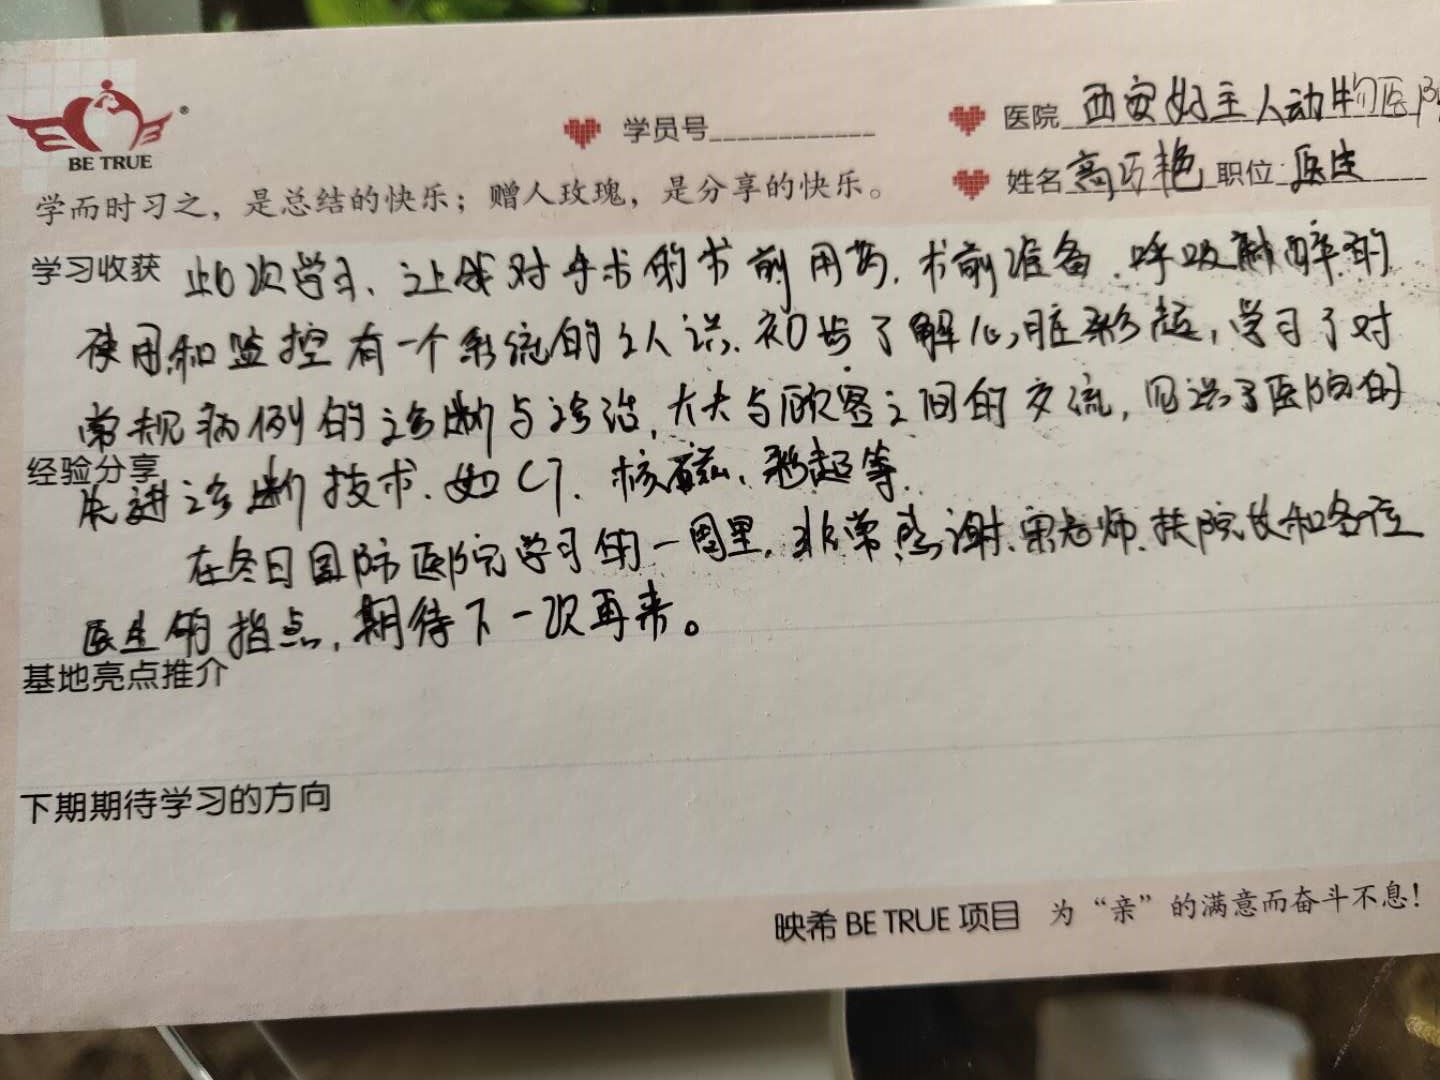 BE TRUE
学员号
医院 西安好主人动物医院
姓名 高巧艳 职位 医生
学而时习之，是总结的快乐；赠人玫瑰，是分享的快乐。
学习收获 此次学习、让我对手术的术前用药、术前准备、呼吸麻醉的
使用和监控有一个系统的认识、初步了解心脏彩超，学习了对
常规病例的诊断与诊治，大夫与顾客之间的交流，见识了医院的
经验分享
先进诊断技术、如CT、核磁、彩超等.
在冬日国际医院学习的一周里，非常感谢、宋老师、扶院长和各位
医生的指点，期待下一次再来。
基地亮点推介
下期期待学习的方向
映希 BE TRUE 项目 为“亲”的满意而奋斗不息！